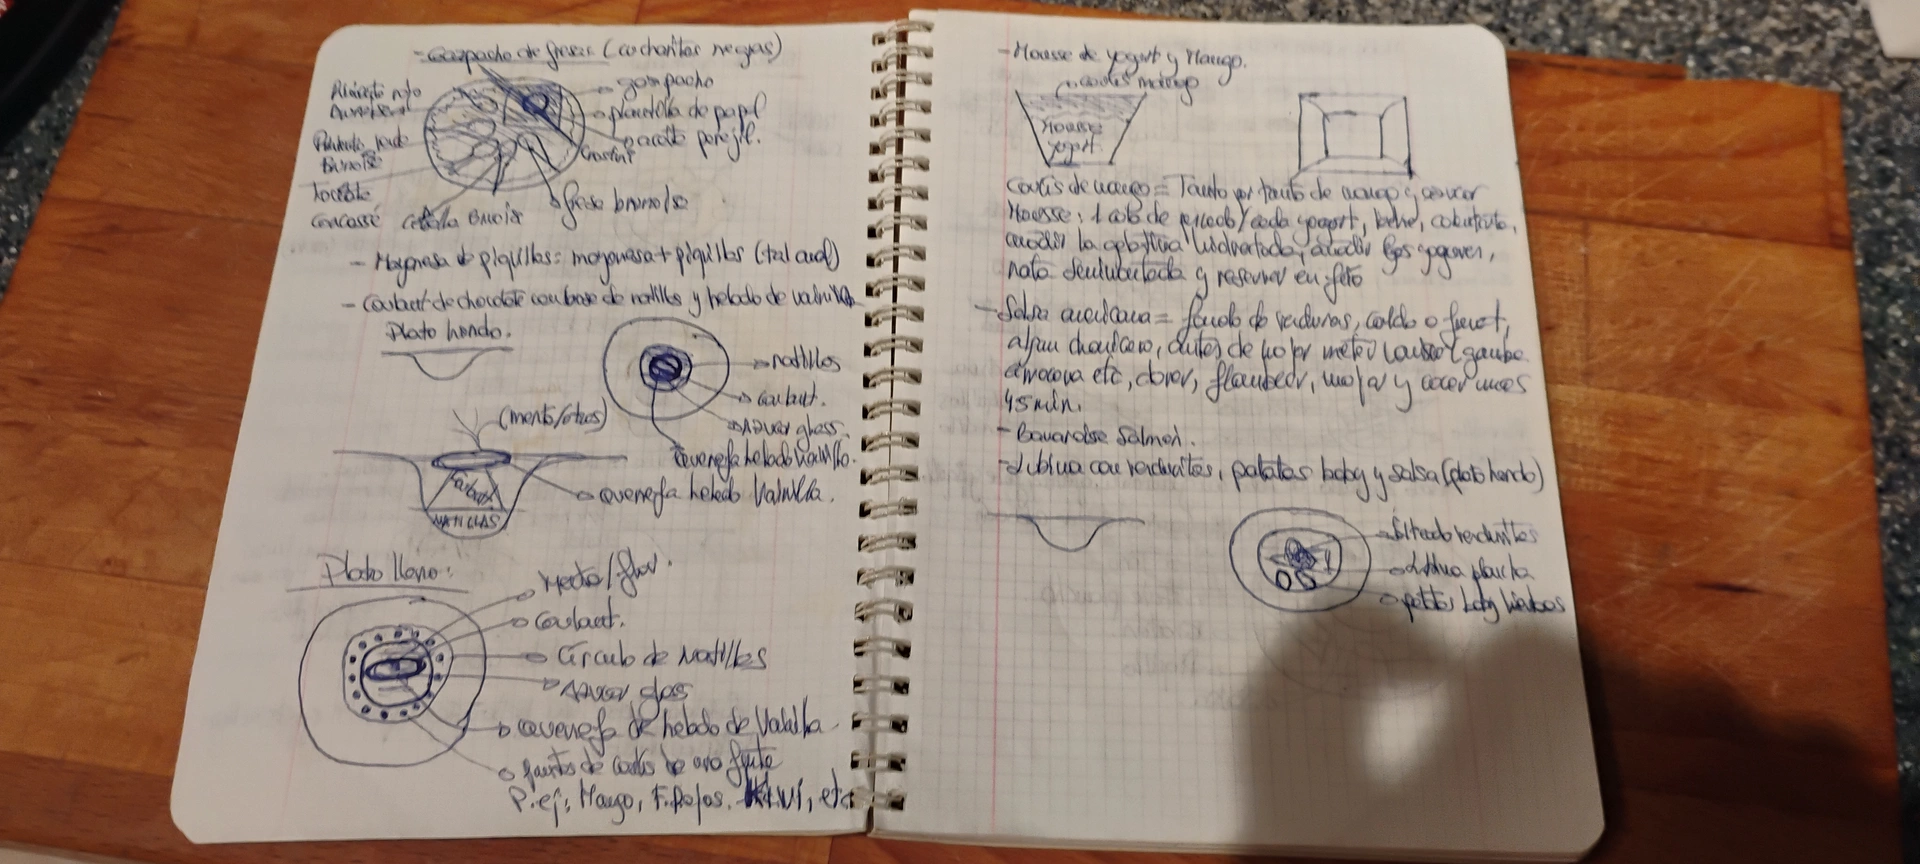 - Gazpacho de fresas (cucharitas negras)
Pimiento rojo
gazpacho
plantilla de papel
aceite perejil.
Crostini
Pimiento verde
Brunoise
Tomate
Concassé
Cebolla Brunoise
fresa brunoise
- Mayonesa de piquillos = mayonesa + piquillos (tal cual)
- Coulant de chocolate con base de natillas y helado de vainilla
Plato hondo.
natillas
Coulant.
Azucar glass.
Quenefa helado Vainilla.
(menta/otros)
Quenefa helado Vainilla.
Coulant
NATILLAS
Plato llano:
Menta/flor.
Coulant.
Círculo de Natillas
Azucar glas
Quenefa de helado de Vainilla
puntos de coulis de otra fruta
P.ej: Mango, F. Rojos. Kiwi, etc
- Mousse de yogurt y Mango.
coulis mango
Mousse
yogurt.
Coulis de mango = Tanto por tanto de mango y azucar
Mousse: 1 cola de pescado/cada yogurt, leche,
añadir la gelatina hidratada, añadir los yogures,
nata semimontada y reservar en frío
- Salsa americana = fondo de verduras, caldo o fumet,
algun choricero, antes de mojar meter gamba
etc, dorar, flambear, mojar y cocer unos
45 min.
- Bavaroise Salmón.
- Lubina con verduritas, patatas baby y salsa (plato hondo)
Salteado verduritas
Lubina plancha
patatas baby